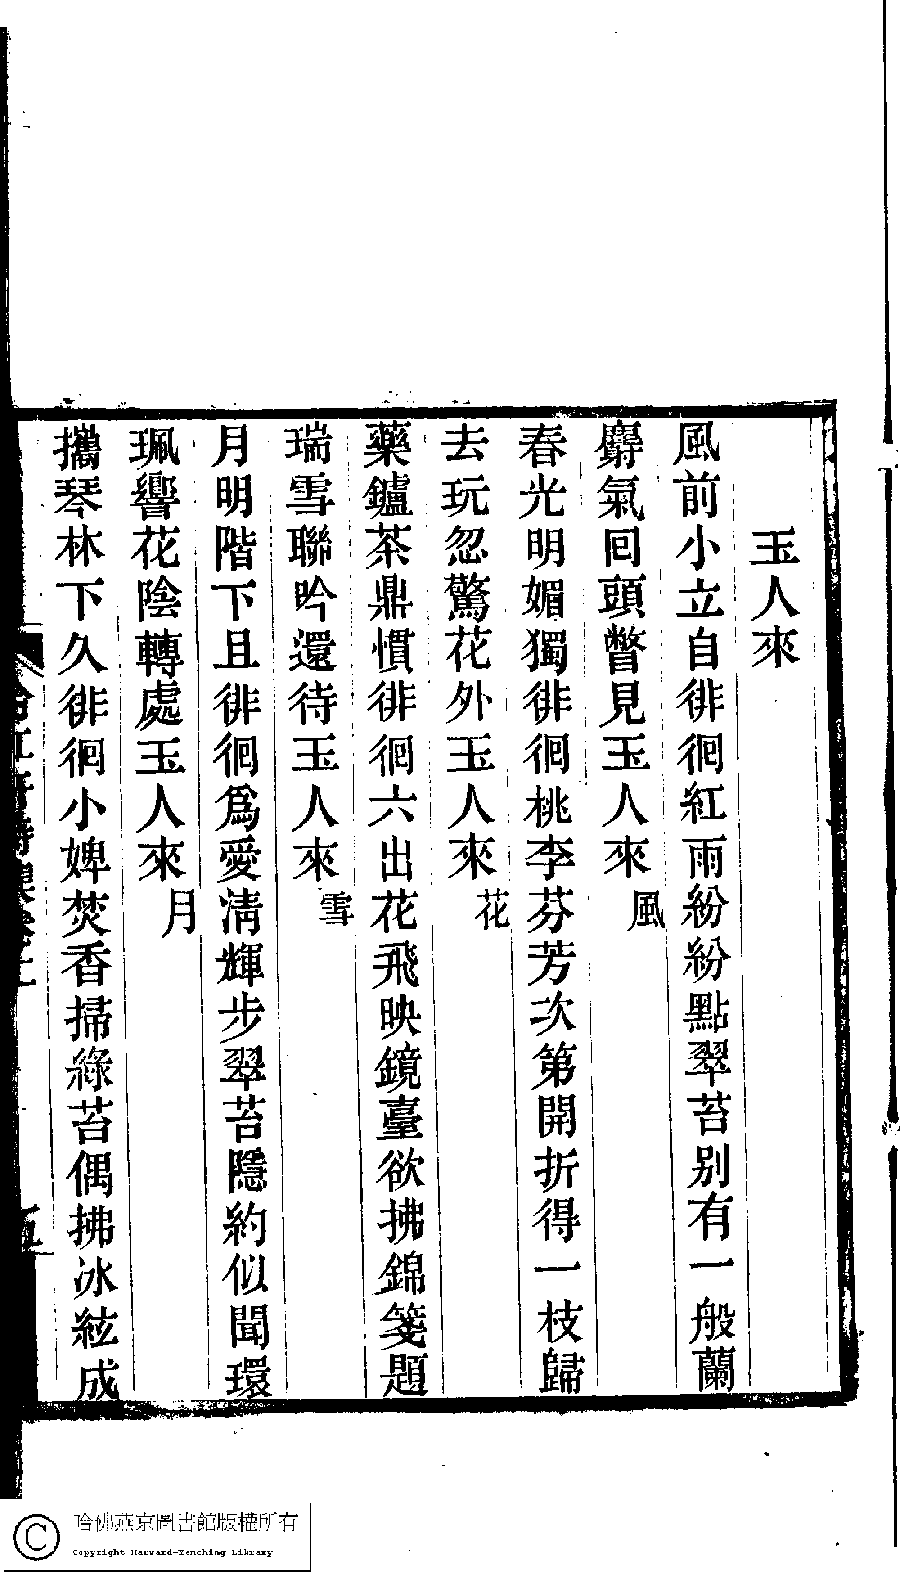 玉人來
風前小立自徘徊紅雨紛紛點翠苔别有一般蘭
麝氣回頭瞥見玉人來風
春光明媚獨徘徊桃李芬芳次第開折得一枝歸
去玩忽驚花外玉人來花
藥鑪茶鼎慣徘徊六出花飛映鏡臺欲拂錦箋題
瑞雪聯吟還待玉人來雪
月明階下且徘徊爲愛淸輝步翠苔隱約似聞環
珮響花陰轉處玉人來月
攜琴林下久徘徊小婢焚香掃綠苔偶拂冰絃成
五
哈佛燕京圖書館版權所有
Copyright Harvard-Yenching Library